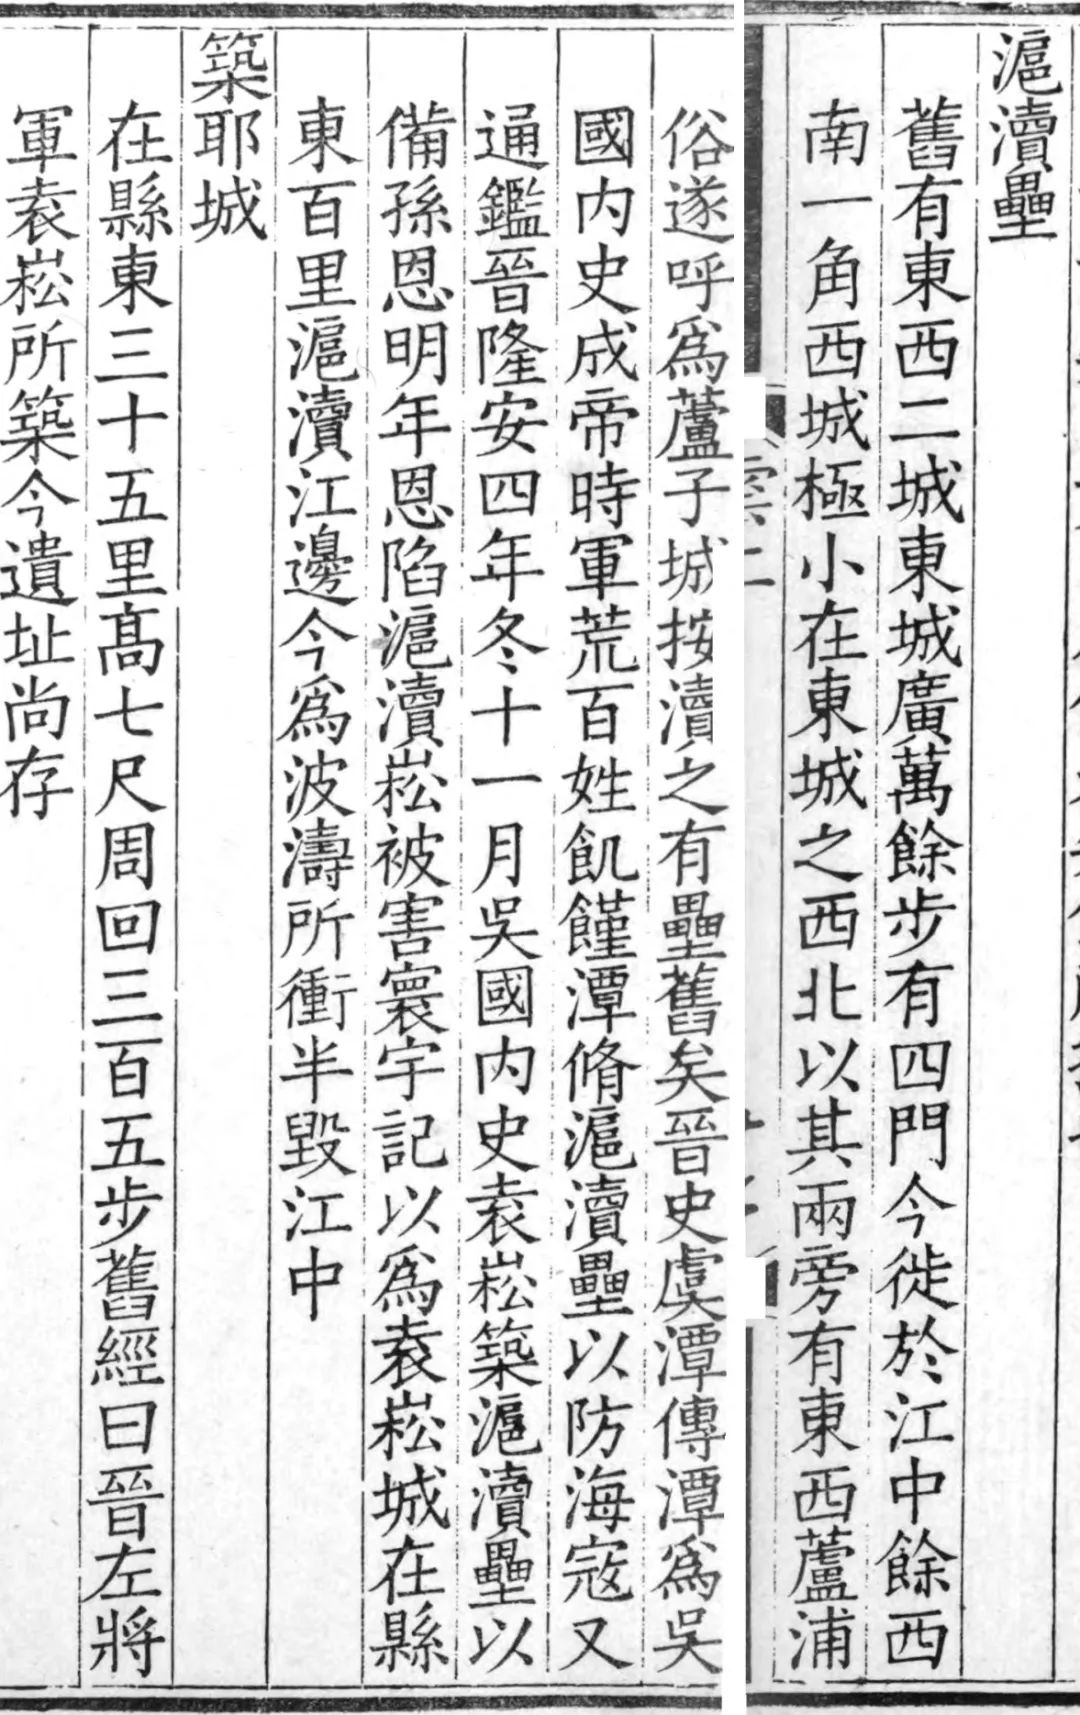 滬瀆壘
舊有東西二城東城廣萬餘步有四門今徙於江中餘西
南一角西城極小在東城之西北以其兩旁有東西蘆浦
俗遂呼爲蘆子城按瀆之有壘舊矣晉史虞潭傳潭爲吳
國内史成帝時軍荒百姓飢饉潭脩滬瀆壘以防海寇又
通鑑晉隆安四年冬十一月吳國内史袁崧築滬瀆壘以
備孫恩明年恩陷滬瀆崧被害寰宇記以爲袁崧城在縣
東百里滬瀆江邊今爲波濤所衝半毀江中
築耶城
在縣東三十五里髙七尺周回三百五步舊經曰晉左將
軍袁崧所築今遺址尚存